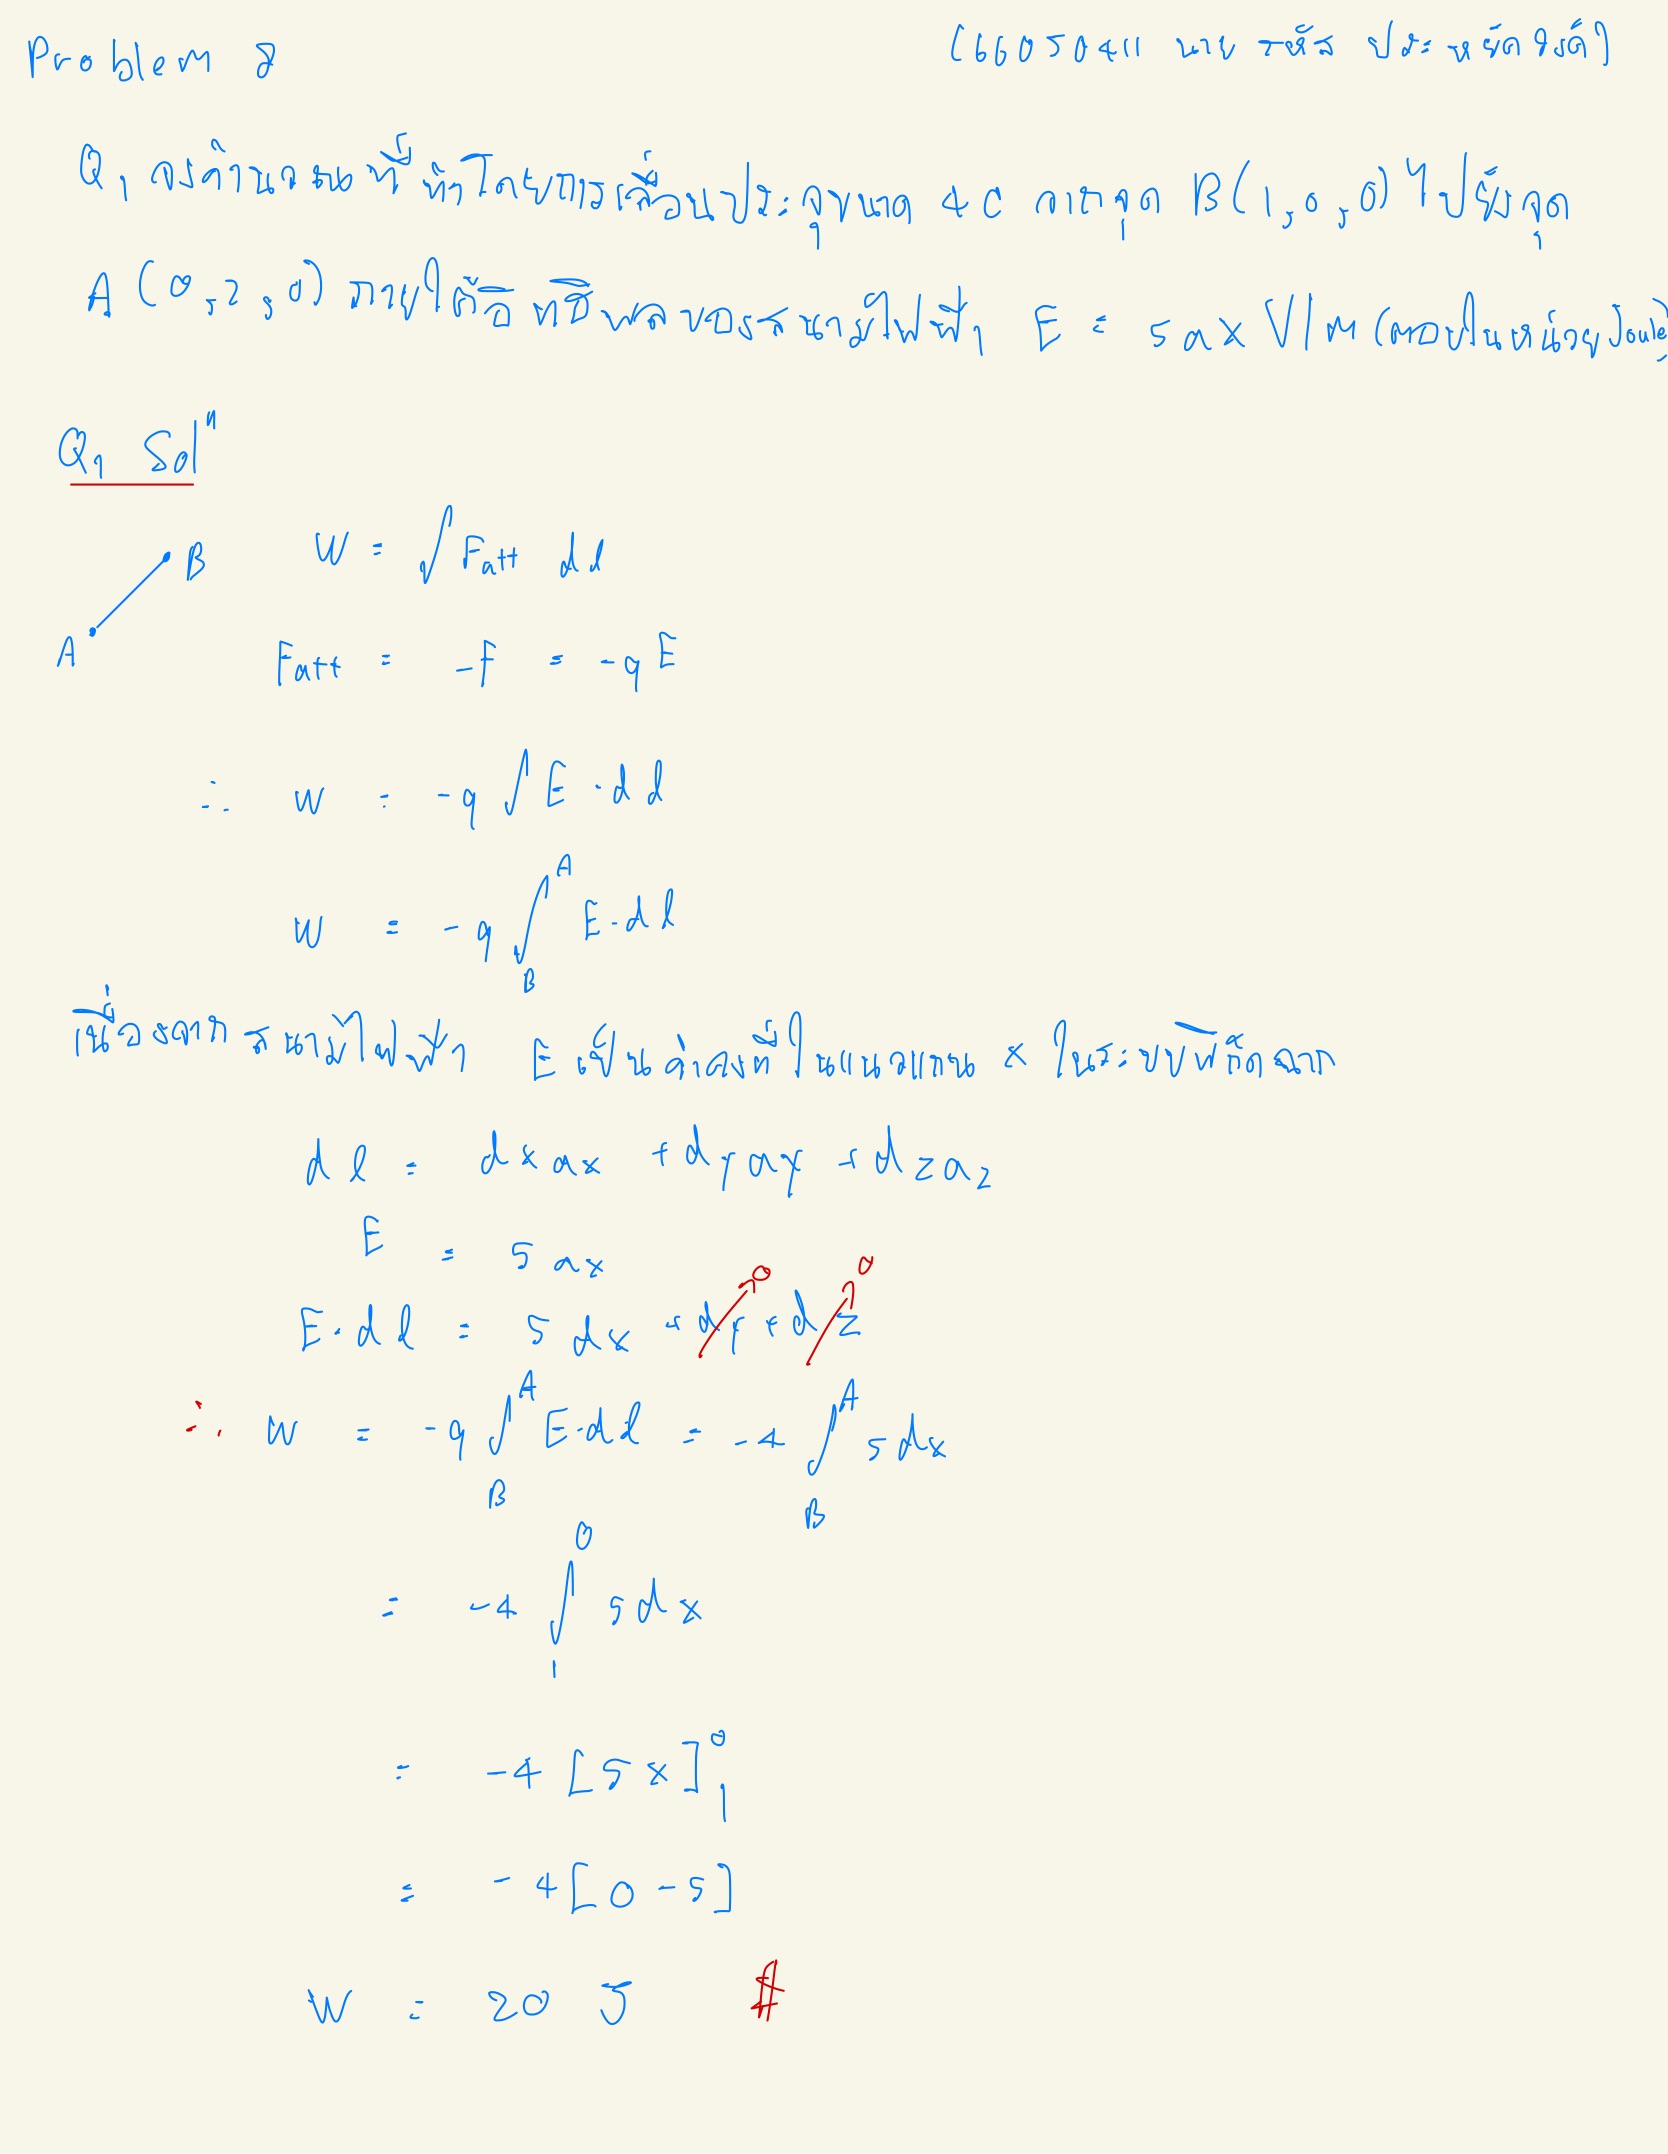 Problem 8
(66050411 นาย รหัส ประหยัดยงค์)
Q1 จงคำนวณที่ทำโดยการเลื่อนประจุขนาด 4 C จากจุด B(1,0,0) ไปยังจุด
A (0,2,0) ภายใต้อิทธิพลของสนามไฟฟ้า E = 5ax V/m (ตอบในหน่วย Joule)
Q1 Solⁿ
B
A
W = ∫ Fatt dl
Fatt = -F = -qE
∴ W = -q ∫ E · dl
W = -q ∫_B^A E · dl
เนื่องจาก สนามไฟฟ้า E เป็นค่าคงที่ในแนวแกน x ในระบบพิกัดฉาก
dl = dxax + dyay + dzaz
E = 5ax
E · dl = 5dx + dy + dz
0 0
∴ W = -q ∫_B^A E · dl = -4 ∫_B^A 5dx
= -4 ∫_1^0 5dx
= -4 [5x]_1^0
= -4 [0 - 5]
W = 20 J #